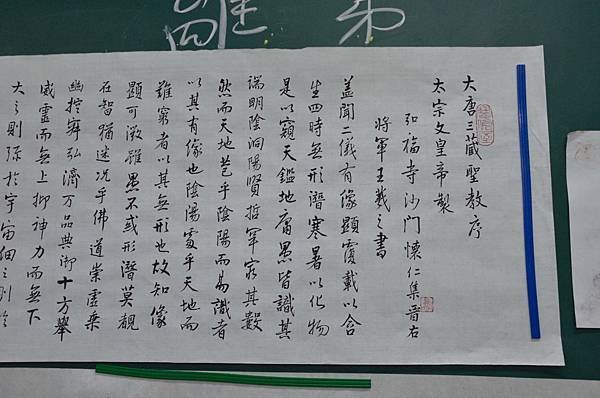 大唐三藏聖教序
太宗文皇帝製
弘福寺沙門懷仁集晉右
將軍王羲之書
蓋聞二儀有像顯覆載以含
生四時無形潛寒暑以化物
是以窺天鑑地庸愚皆識其
端明陰洞陽賢哲罕窮其數
然而天地苞乎陰陽而易識者
以其有像也陰陽處乎天地而
難窮者以其無形也故知像
顯可徵雖愚不惑形潛莫覩
在智猶迷况乎佛道崇虛乘
幽控寂弘濟万品典御十方舉
威靈而無上抑神力而無下
大之則弥於宇宙細之則